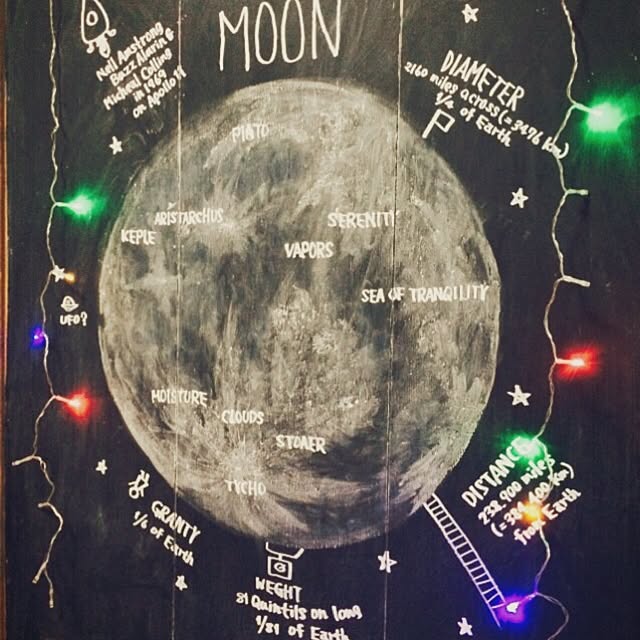 MOON
Neil Amstrong
Buzz Alarin &
Micheal Collins
in 1969
on Apollo 11
DIAMETER
2160 miles across (= 3476 km)
1/4 of Earth
PlATO
ARISTARCHUS
KEPLE
SERENITY
VAPORS
SEA OF TRANQILITY
UFO?
MOISTURE
CLOUDS
STOLER
TYCHO
GRANTY
1/6 of Earth
DISTANCE
238,900 miles
(= 384,400 km)
from Earth
WEGHT
81 Quintils on long
1/81 of Earth